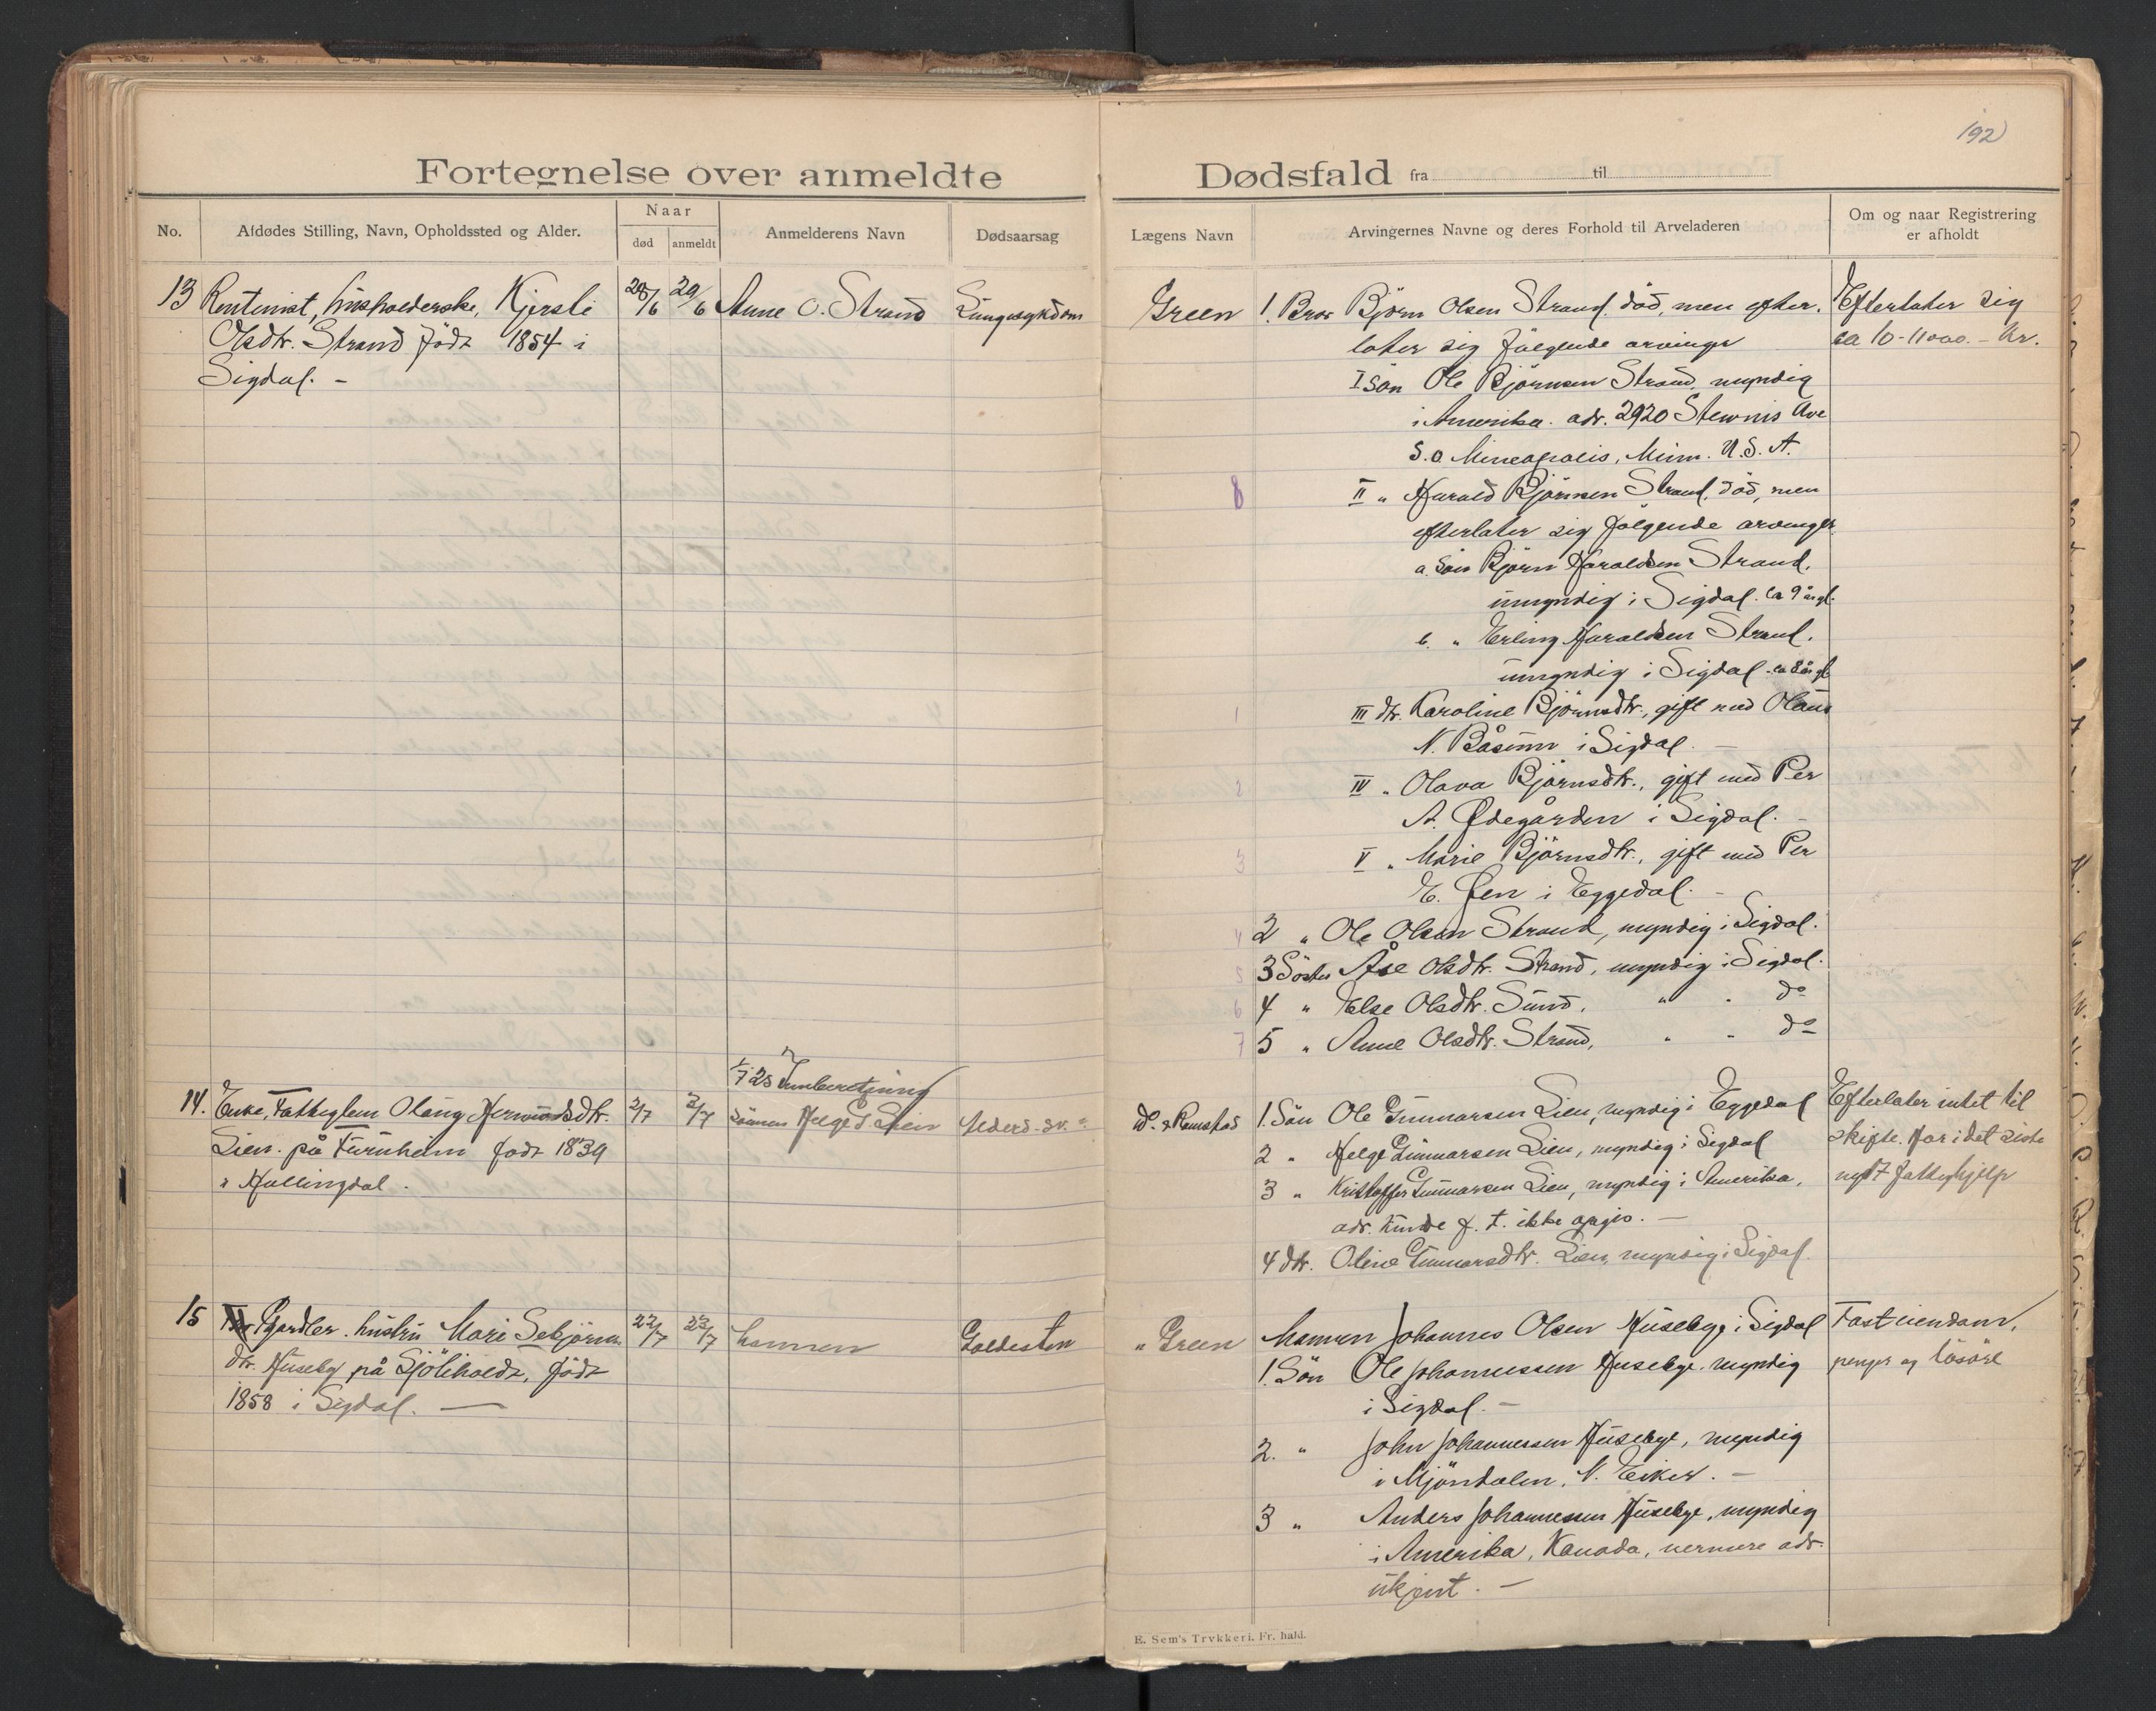 192
Fortegnelse over anmeldte Dødsfald fra til
No.
Afdødes Stilling, Navn, Opholdssted og Alder.
Naar
død anmeldt
Anmelderens Navn
Dødsaarsag
Lægens Navn
Arvingernes Navne og deres Forhold til Arveladeren
Om og naar Registrering
er afholdt
13 Rentenist, husholderske, Kjersti
Olsdtr. Strand født 1854 i
Sigdal. -
28/6 29/6 Anne O. Strand Lungesykdom
Green
1. Bror Björn Olsen Strand, död, men efter.
later sig følgende arvinger
I Sön Ole Björnsen Strand, myndig
i Amerika. adr. 2920 Ave
S.o Mineapolis, Minn. U.S.A.
8
II " Harald Björnsen Strand, död, men
efterlater sig følgende arvinger
a. Sön Björn Haraldsen Strand,
umyndig i Sigdal. ca 9 år gl.
b. " Erling Haraldsen Strand,
umyndig i Sigdal. ca 8 år gl
1 III dtr. Karoline Björnsdtr., gift med Olaus
N. Båsum i Sigdal. -
2 IV " Olava Björnsdtr., gift med Per
A. Ødegården i Sigdal. -
3 V " Marie Björnsdtr., gift med Per
E. Øen i Eggedal. -
4 2 " Ole Olsen Strand, myndig i Sigdal.
5 3 Söster Åse Olsdtr. Strand, myndig i Sigdal.
6 4 " Else Olsdtr. Sund, " " do
7 5 " Anne Olsdtr. Strand, " " do
Efterlater sig
ca 10-11000.- kr.
1/7 25 Innberetning
14. Enke, Fattiglem Olaug Hermundsdtr.
Lien. på Furuheim født 1839
i Hallingdal.
2/7 2/7 Sönnen Helge G. Lien Alderd. sv.
d. Ramstad
1. Sön Ole Gunnarsen Lien, myndig i Eggedal
2 " Helge Gunnarsen Lien, myndig i Sigdal
3 " Kristoffer Gunnarsen Lien, myndig i Amerika,
adr. kunde f. t. ikke opgis. -
4 dtr. Oline Gunnarsdtr. Lien, myndig i Sigdal.
Efterlater intet til
skifte. Har i det siste
nytt fattighjelp
15 Gardbr. hustru Mari Sebjörns
dtr. Huseby på Sjöliholdt, født
1858 i Sigdal. -
22/7 23/7 Mannen Galdesten
" Green
Mannen Johannes Olsen Husebye i Sigdal
1. Sön Ole Johannessen Husebye, myndig
i Sigdal. -
2. " John Johannessen Husebye, myndig
i Mjöndalen, N. Eiker. -
3 " Anders Johannessen Husebye, myndig
i Amerika, Kanada, nermere adr.
ukjent. -
Fast eiendom,
penger og lösöre
E. Sem's Trykkeri. Fr. hald.